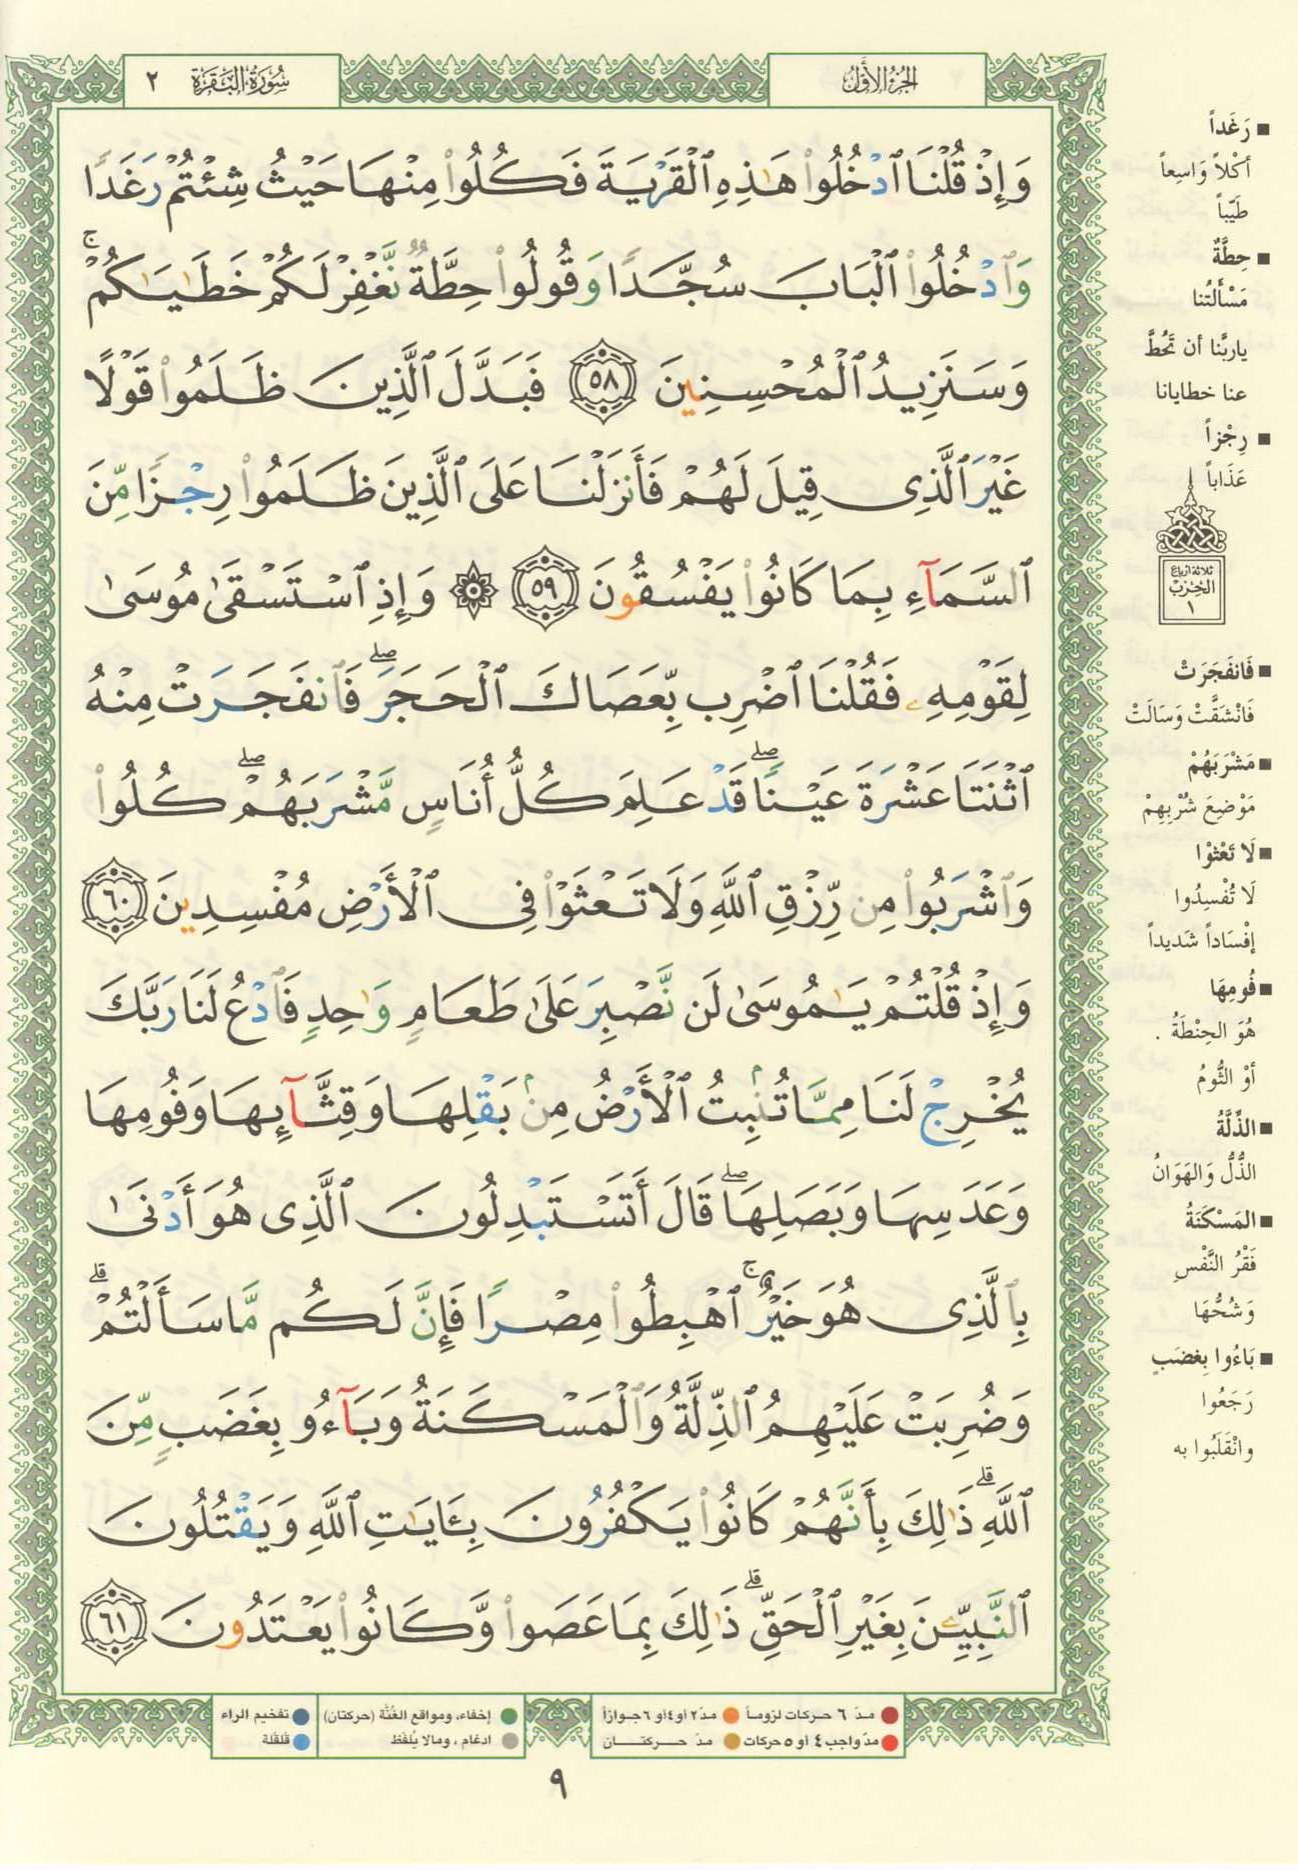 الجزء الأول
سورة البقرة ٢
وَإِذْ قُلْنَا ٱدْخُلُوا۟ هَٰذِهِ ٱلْقَرْيَةَ فَكُلُوا۟ مِنْهَا حَيْثُ شِئْتُمْ رَغَدًا
وَٱدْخُلُوا۟ ٱلْبَابَ سُجَّدًا وَقُولُوا۟ حِطَّةٌ نَّغْفِرْ لَكُمْ خَطَٰيَٰكُمْ ۚ
وَسَنَزِيدُ ٱلْمُحْسِنِينَ ٥٨ فَبَدَّلَ ٱلَّذِينَ ظَلَمُوا۟ قَوْلًا
غَيْرَ ٱلَّذِى قِيلَ لَهُمْ فَأَنزَلْنَا عَلَى ٱلَّذِينَ ظَلَمُوا۟ رِجْزًا مِّنَ
ٱلسَّمَآءِ بِمَا كَانُوا۟ يَفْسُقُونَ ٥٩ ۞ وَإِذِ ٱسْتَسْقَىٰ مُوسَىٰ
لِقَوْمِهِۦ فَقُلْنَا ٱضْرِب بِّعَصَاكَ ٱلْحَجَرَ ۖ فَٱنفَجَرَتْ مِنْهُ
ٱثْنَتَا عَشْرَةَ عَيْنًا ۖ قَدْ عَلِمَ كُلُّ أُنَاسٍ مَّشْرَبَهُمْ ۖ كُلُوا۟
وَٱشْرَبُوا۟ مِن رِّزْقِ ٱللَّهِ وَلَا تَعْثَوْا۟ فِى ٱلْأَرْضِ مُفْسِدِينَ ٦٠
وَإِذْ قُلْتُمْ يَٰمُوسَىٰ لَن نَّصْبِرَ عَلَىٰ طَعَامٍ وَٰحِدٍ فَٱدْعُ لَنَا رَبَّكَ
يُخْرِجْ لَنَا مِمَّا تُنۢبِتُ ٱلْأَرْضُ مِنۢ بَقْلِهَا وَقِثَّآئِهَا وَفُومِهَا
وَعَدَسِهَا وَبَصَلِهَا ۖ قَالَ أَتَسْتَبْدِلُونَ ٱلَّذِى هُوَ أَدْنَىٰ
بِٱلَّذِى هُوَ خَيْرٌ ۚ ٱهْبِطُوا۟ مِصْرًا فَإِنَّ لَكُم مَّا سَأَلْتُمْ ۗ
وَضُرِبَتْ عَلَيْهِمُ ٱلذِّلَّةُ وَٱلْمَسْكَنَةُ وَبَآءُو بِغَضَبٍ مِّنَ
ٱللَّهِ ۗ ذَٰلِكَ بِأَنَّهُمْ كَانُوا۟ يَكْفُرُونَ بِـَٔايَٰتِ ٱللَّهِ وَيَقْتُلُونَ
ٱلنَّبِيِّۦنَ بِغَيْرِ ٱلْحَقِّ ۗ ذَٰلِكَ بِمَا عَصَوا۟ وَّكَانُوا۟ يَعْتَدُونَ ٦١
■ رَغَداً
أكْلاً وَاسِعاً
طَيِّباً
■ حِطَّةٌ
مَسْأَلَتُنا
ياربَّنا أن تَحُطَّ
عنا خطايانا
■ رِجْزاً
عَذَاباً
ثلاثة أرباع
الحزب
١
■ فَانفَجَرَتْ
فَانْشَقَّتْ وَسَالَتْ
■ مَشْرَبَهُمْ
مَوْضِعَ شُرْبِهِمْ
■ لَا تَعْثَوْا
لَا تُفْسِدُوا
إفْسَاداً شَديداً
■ فُومِهَا
هُوَ الحِنْطَةُ .
أوْ الثُّومُ
■ الذِّلَّةُ
الذُّلُّ وَالهَوَانُ
■ المَسْكَنَةُ
فَقْرُ النَّفْسِ
وَشُحُّهَا
■ بَاءُوا بِغضَبٍ
رَجَعُوا
وانْقَلَبُوا به
مدّ ٦ حركات لزوماً ● مدّ ٢ أو ٤ أو ٦ جوازاً ● إخفاء، ومواقع الغُنَّة (حركتان) ● تفخيم الراء
مدّ واجب ٤ أو ٥ حركات ● مدّ حركتان ● ادغام ، ومالا يُلفَظ ● قلقلة
٩